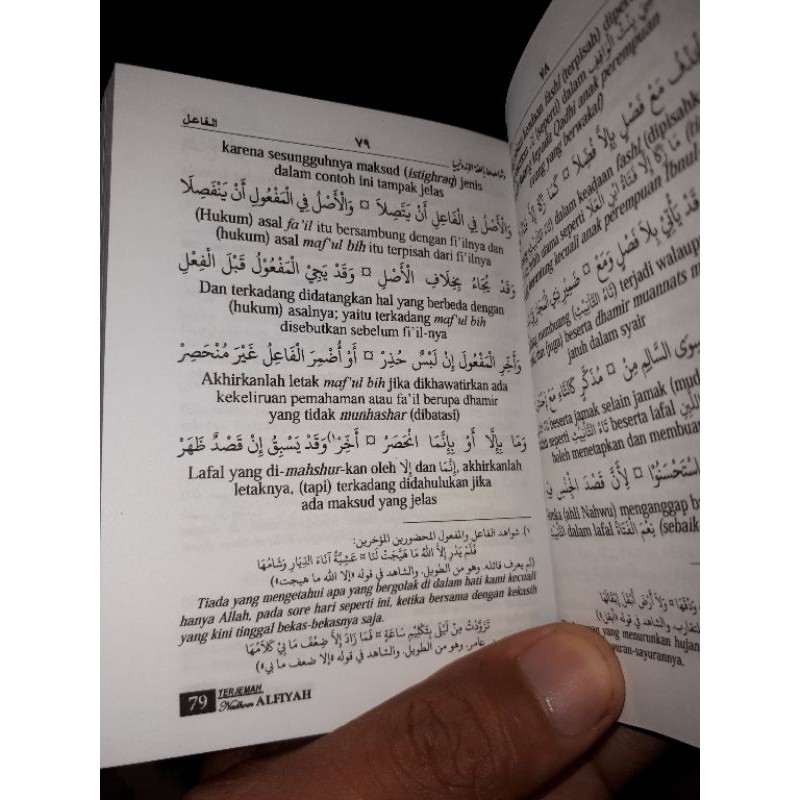 الفاعل
٧٩
karena sesungguhnya maksud (istighraq) jenis
dalam contoh ini tampak jelas
وَالْأَصْلُ فِي الْفَاعِلِ أَنْ يَتَّصِلَا ¤ وَالْأَصْلُ فِي الْمَفْعُولِ أَنْ يَنْفَصِلَا
(Hukum) asal fa'il itu bersambung dengan fi'ilnya dan
(hukum) asal maf'ul bih itu terpisah dari fi'ilnya
وَقَدْ يُجَاءُ بِخِلَافِ الْأَصْلِ ¤ وَقَدْ يَجِي الْمَفْعُوْلُ قَبْلَ الْفِعْلِ
Dan terkadang didatangkan hal yang berbeda dengan
(hukum) asalnya; yaitu terkadang maf'ul bih
disebutkan sebelum fi'il-nya
وَأَخِّرِ الْمَفْعُولَ إِنْ لَبْسٌ حُذِرْ ¤ أَوْ أُضْمِرَ الْفَاعِلُ غَيْرَ مُنْحَصِرْ
Akhirkanlah letak maf'ul bih jika dikhawatirkan ada
kekeliruan pemahaman atau fa'il berupa dhamir
yang tidak munhashar (dibatasi)
وَمَا بِإِلَّا أَوْ بِإِنَّمَا انْحَصَرْ ¤ أَخِّرْ ١) وَقَدْ يَسْبِقُ إِنْ قَصْدٌ ظَهَرْ
Lafal yang di-mahshur-kan oleh إِلَّا dan إِنَّمَا, akhirkanlah
letaknya, (tapi) terkadang didahulukan jika
ada maksud yang jelas
١). شواهد الفاعل والمفعول المحصورين المؤخرين:
فَلَمْ يَدْرِ إِلَّا اللهُ مَا هَيَّجَتْ لَنَا ¤ عَشِيَّةَ آنَاءِ الدِّيَارِ وَشَامُهَا
(لم يعرف قائله. وهو من الطويل. والشاهد في قوله «إلا الله ما هيجت»)
Tiada yang mengetahui apa yang bergolak di dalam hati kami kecuali
hanya Allah, pada sore hari seperti ini, ketika bersama dengan kekasih
yang kini tinggal bekas-bekasnya saja.
تَزَوَّدْتُ مِنْ لَيْلَى بِتَكْلِيْمِ سَاعَةٍ ¤ فَمَا زَادَ إِلَّا ضِعْفَ مَا بِي كَلَامُهَا
عامر. وهو من الطويل. والشاهد في قوله «إلا ضعف ما بي»)
79 TERJEMAH
Nadhom ALFIYAH
٧٨
(terpisah)
(seperti) dalam
kepada Qadhi anak perempuan
(yang berwakaf)
مَعَ فَصْلٍ بِإِلَّا فُضِّلَا
dalam keadaan fashl (dipisahk
kecuali anak perempuan Ibnul
قَدْ يَأْتِي بِلَا فَصْلٍ وَمَعْ
membuang terjadi walaup
(juga) beserta dhamir muannats m
jatuh dalam syair
سِوَى السَّالِمِ مِنْ ¤ مُذَكَّرٍ كَالتَّاءِ مَعْ
beserta jamak selain jamak (mud
seperti beserta lafal
boleh menetapkan dan membuan
اسْتَحْسَنُوا ¤ لِأَنَّ قَصْدَ الْجِنْسِ
(ahli Nahwu) menganggap b
dalam lafal نِعْمَ الْفَتَاةُ (sebaik
yang menurunkan hujan